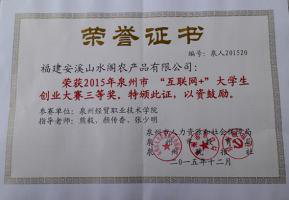 荣誉证书
编号：泉人201520
福建安溪山水阁农产品有限公司：
荣获2015年泉州市“互联网+”大学生
创业大赛三等奖。特颁此证，以资鼓励。
参赛单位：泉州经贸职业技术学院
指导老师：熊毅、颜传香、张少明
泉州市人力资源和社会保障局
二〇一五年十二月